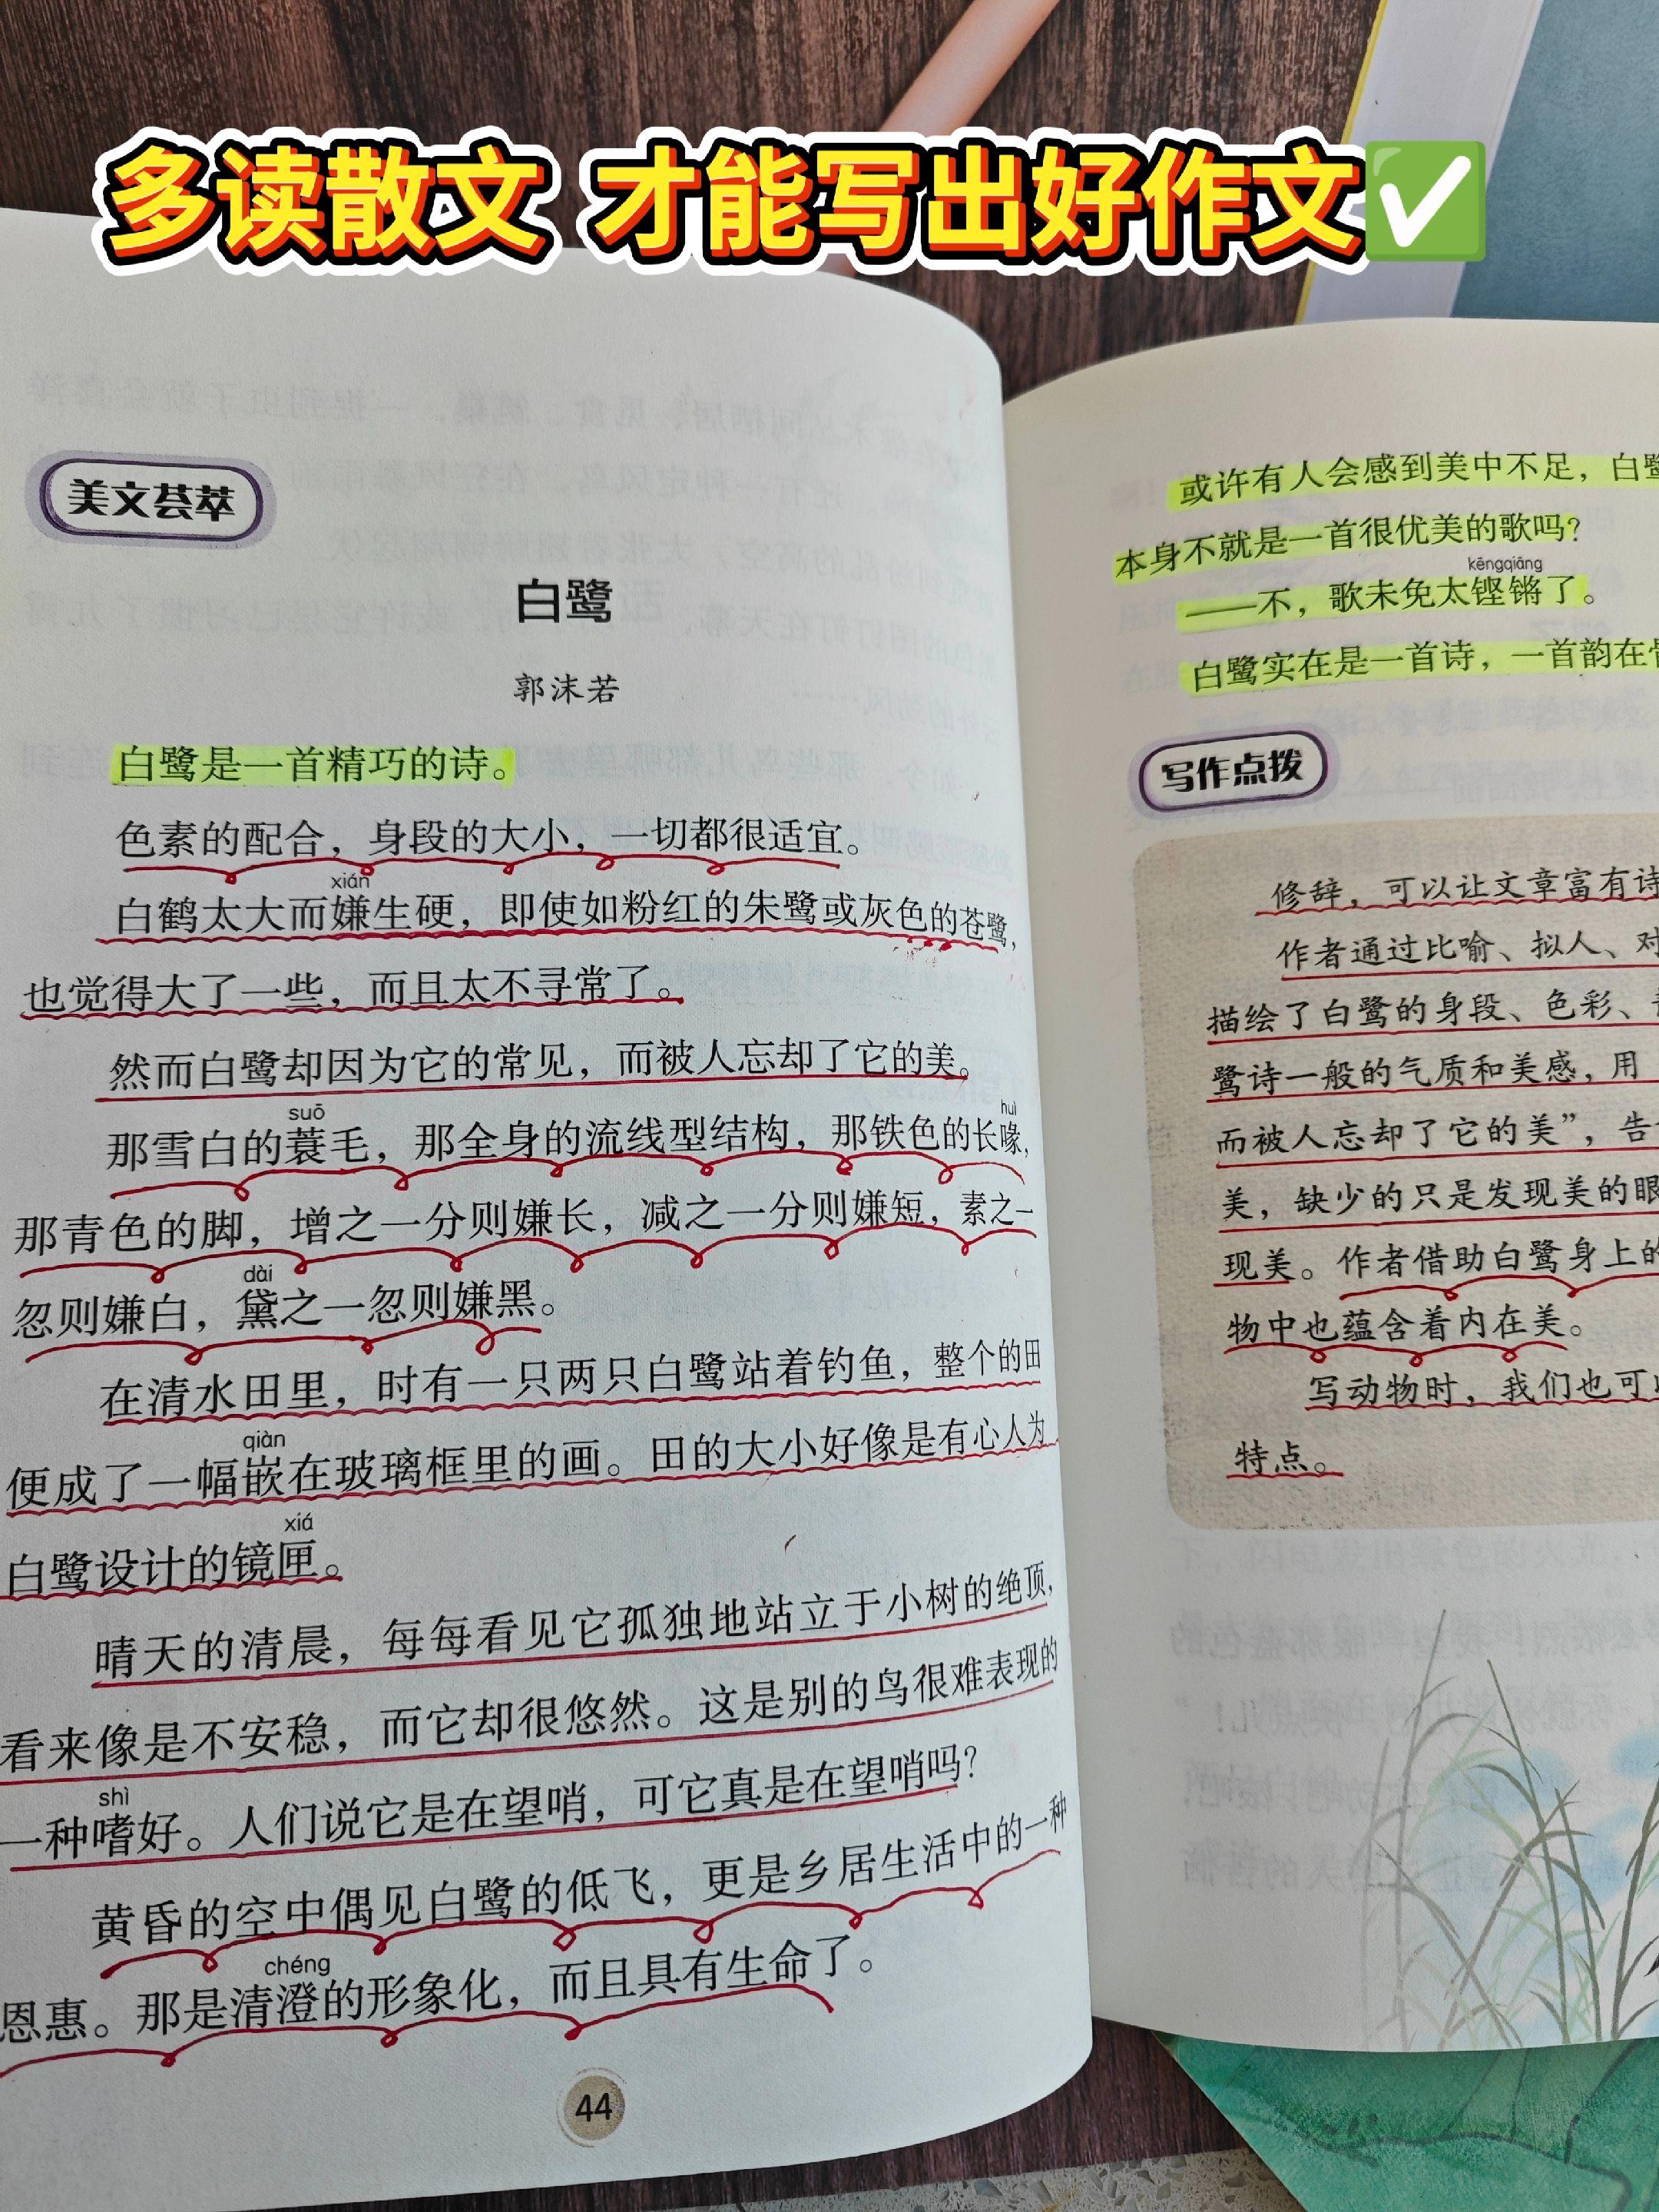 多读散文 才能写出好作文✅
美文荟萃
白鹭
郭沫若
白鹭是一首精巧的诗。
色素的配合，身段的大小，一切都很适宜。
xián
白鹤太大而嫌生硬，即使如粉红的朱鹭或灰色的苍鹭，
也觉得大了一些，而且太不寻常了。
然而白鹭却因为它的常见，而被人忘却了它的美。
suō huì
那雪白的蓑毛，那全身的流线型结构，那铁色的长喙，
那青色的脚，增之一分则嫌长，减之一分则嫌短，素之一
dài
忽则嫌白，黛之一忽则嫌黑。
在清水田里，时有一只两只白鹭站着钓鱼，整个的田
qiàn
便成了一幅嵌在玻璃框里的画。田的大小好像是有心人为
xiá
白鹭设计的镜匣。
晴天的清晨，每每看见它孤独地站立于小树的绝顶，
看来像是不安稳，而它却很悠然。这是别的鸟很难表现的
shì
一种嗜好。人们说它是在望哨，可它真是在望哨吗？
黄昏的空中偶见白鹭的低飞，更是乡居生活中的一种
chéng
恩惠。那是清澄的形象化，而且具有生命了。
44
或许有人会感到美中不足，白鹭
本身不就是一首很优美的歌吗？
kēngqiāng
——不，歌未免太铿锵了。
白鹭实在是一首诗，一首韵在骨
写作点拨
修辞，可以让文章富有诗
作者通过比喻、拟人、对
描绘了白鹭的身段、色彩、
鹭诗一般的气质和美感，用
而被人忘却了它的美”，告
美，缺少的只是发现美的眼
现美。作者借助白鹭身上的
物中也蕴含着内在美。
写动物时，我们也可以
特点。